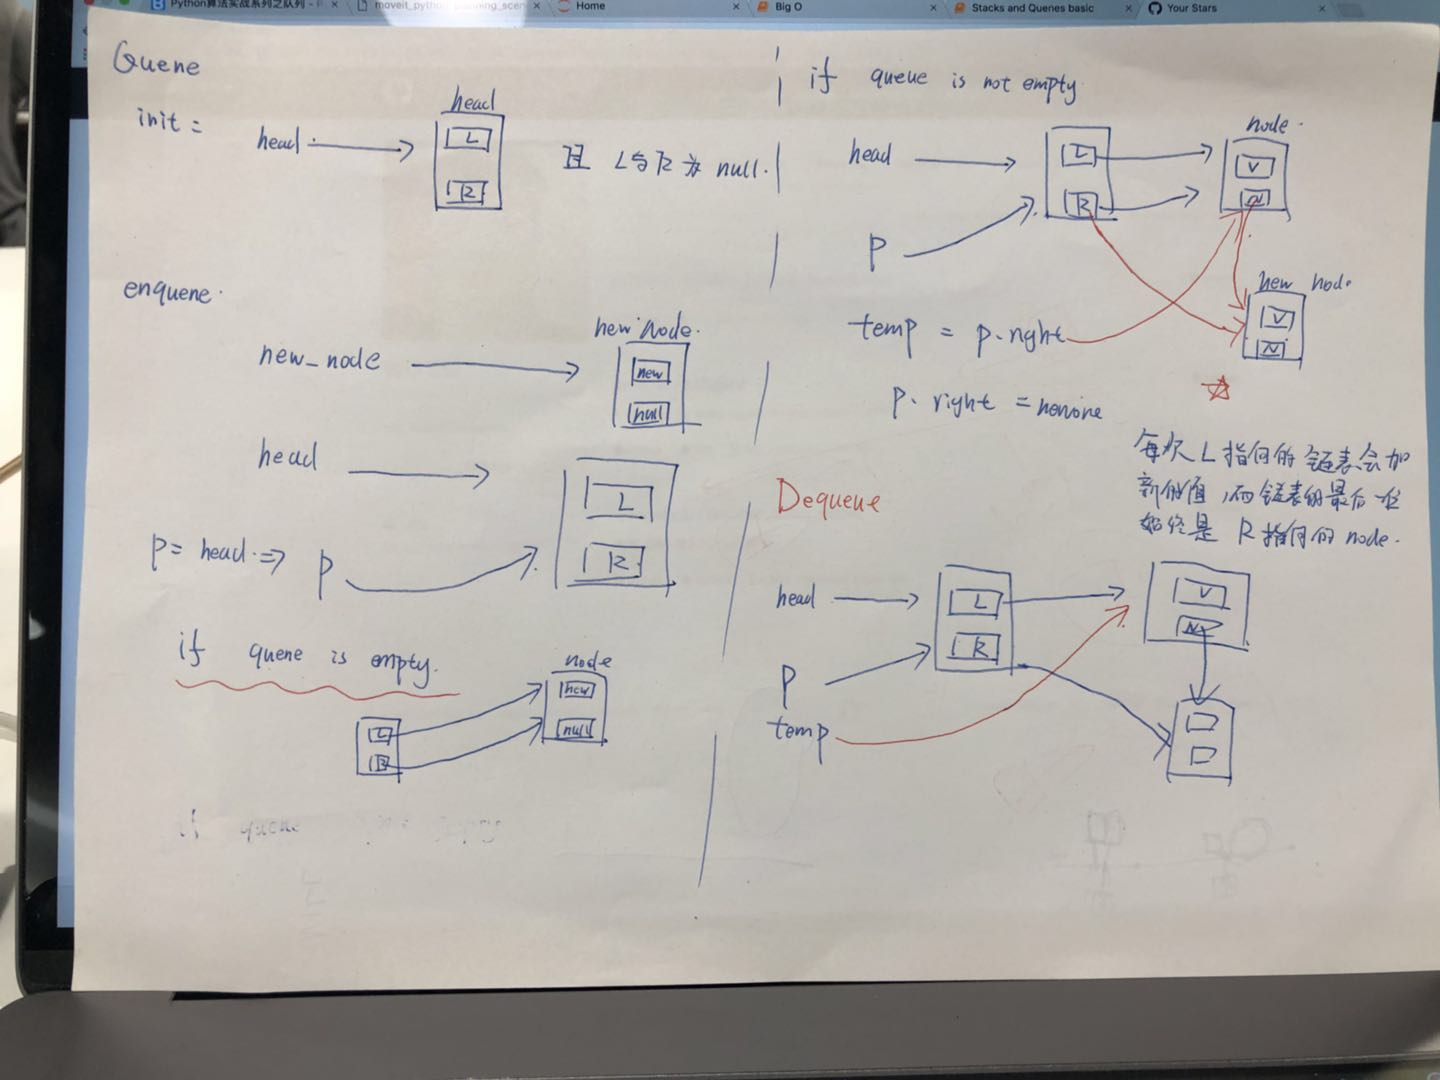 Python算法实战系列之队列 - P
moveit_python_planning_scen
Home
Big O
Stacks and Quenes basic
Your Stars
Quene
init =
head
head
L
R
且 L与R为 null.
enquene.
new_node
new node.
new
null
head
L
R
p = head. => p
if quene is empty.
L
R
node
new
null
if quene
if queue is not empty.
head
L
R
node.
V
N
p
new node.
V
N
temp = p.right
p. right =
每次L指向的链表会加
新的值,而链表的最后一位
始终是 R指向的 node.
Dequene
head
L
R
V
N
p
temp